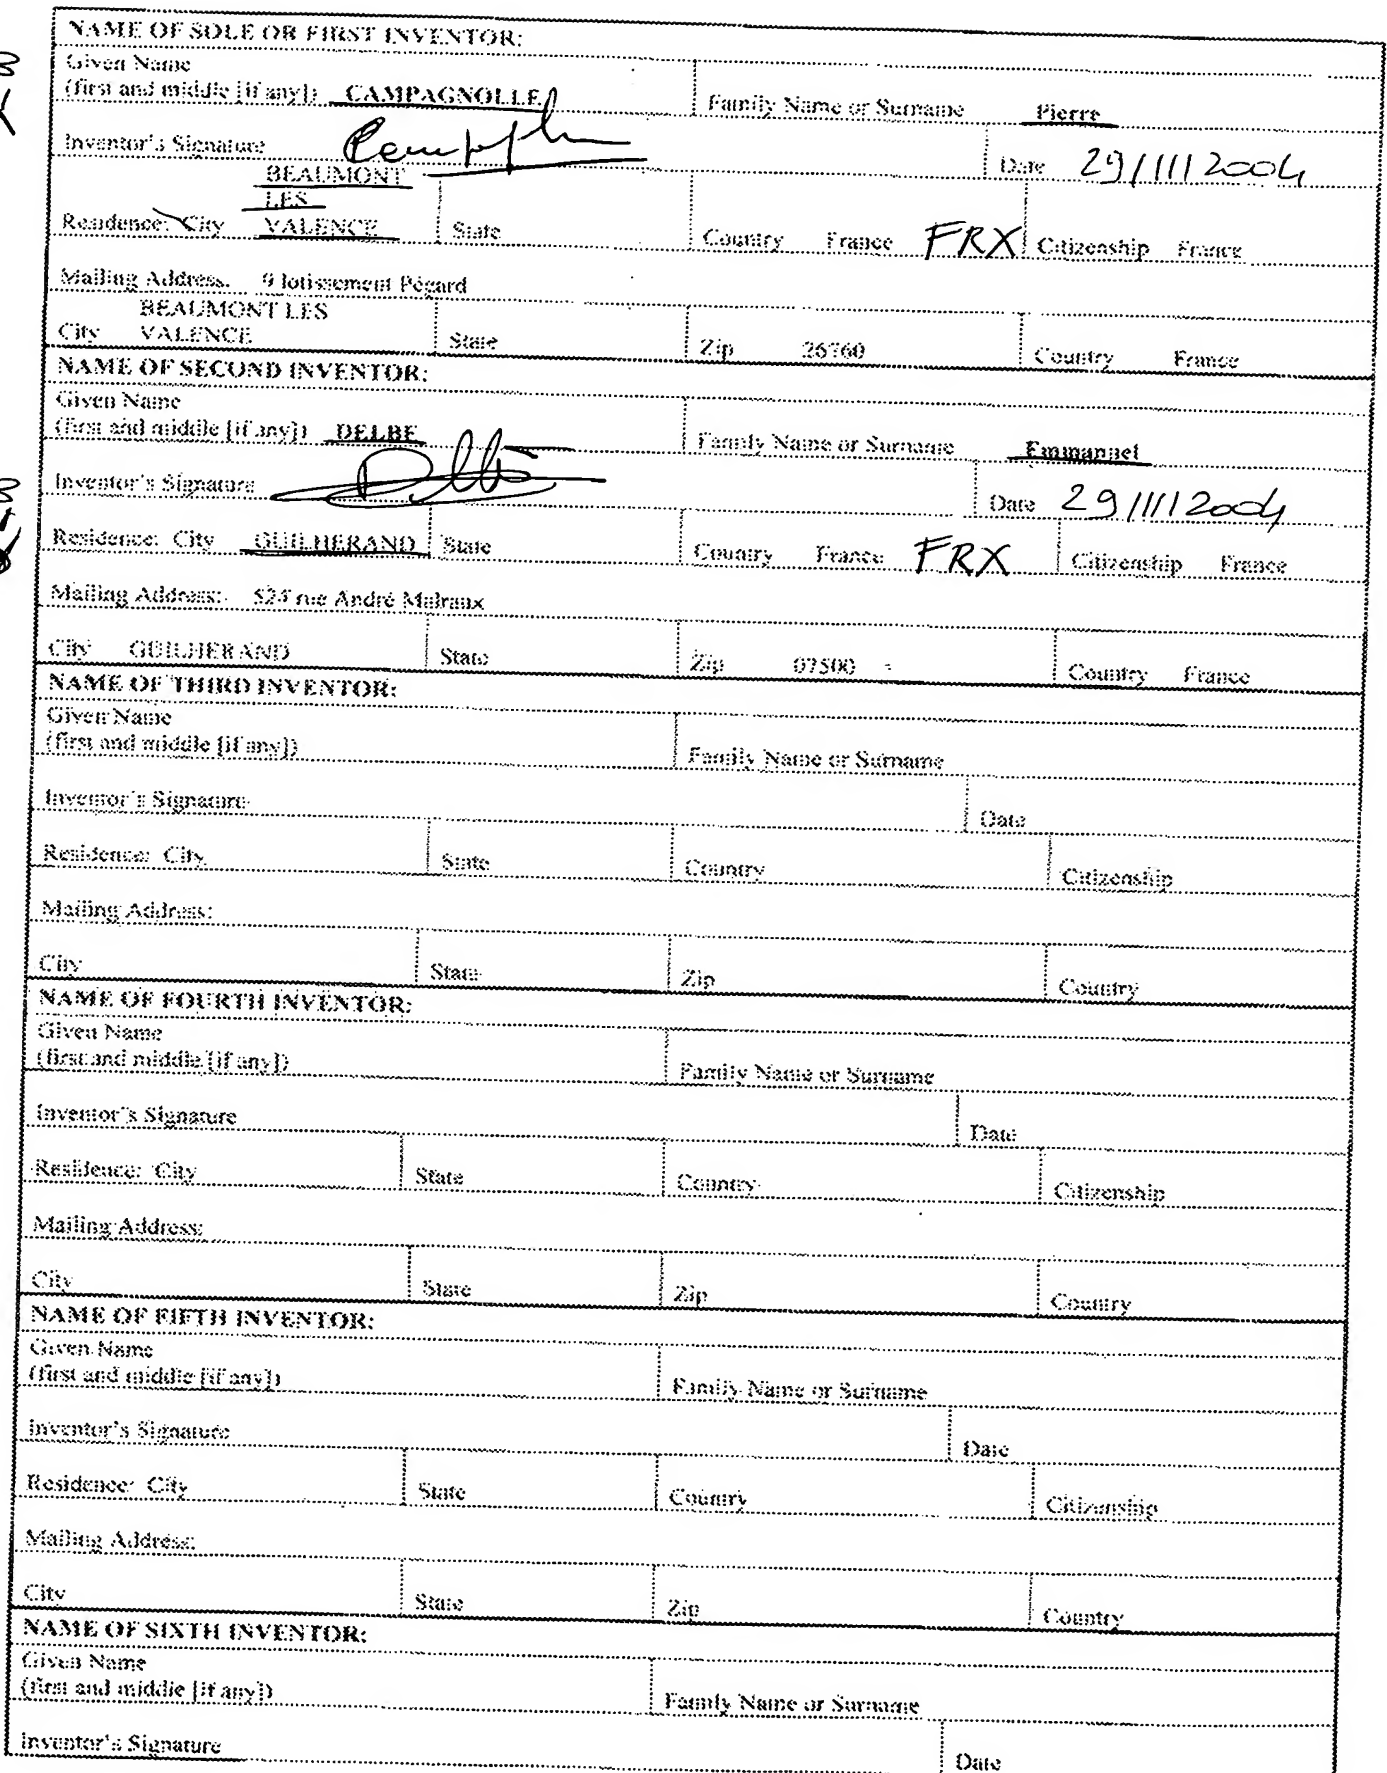 NAME OF SOLE OR FIRST INVENTOR:
Given Name
(first and middle [if any]) CAMPAGNOLLE Family Name or Surname Pierre
Inventor's Signature Date 29/11/2004
BEAUMONT
LES
Residence: City VALENCE State Country France FRX Citizenship France
Mailing Address. 9 lotissement Pégard
BEAUMONT LES
City VALENCE State Zip 26760 Country France
NAME OF SECOND INVENTOR:
Given Name
(first and middle [if any]) DELBE Family Name or Surname Emmanuel
Inventor's Signature Date 29/11/2004
Residence: City GUILHERAND State Country France FRX Citizenship France
Mailing Address: 524 rue André Malraux
City GUILHERAND State Zip 07500 Country France
NAME OF THIRD INVENTOR:
Given Name
(first and middle [if any]) Family Name or Surname
Inventor's Signature Date
Residence: City State Country Citizenship
Mailing Address:
City State Zip Country
NAME OF FOURTH INVENTOR:
Given Name
(first and middle [if any]) Family Name or Surname
Inventor's Signature Date
Residence: City State Country Citizenship
Mailing Address:
City State Zip Country
NAME OF FIFTH INVENTOR:
Given Name
(first and middle [if any]) Family Name or Surname
Inventor's Signature Date
Residence: City State Country Citizenship
Mailing Address:
City State Zip Country
NAME OF SIXTH INVENTOR:
Given Name
(first and middle [if any]) Family Name or Surname
Inventor's Signature Date